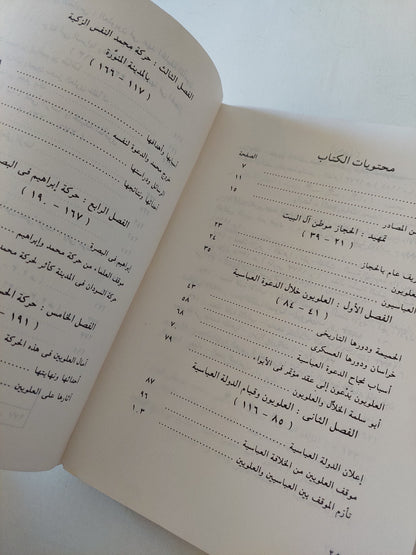 محتويات الكتاب
الصفحة
٧
من المصادر
١٥
تمهيد : الحجاز موطن آل البيت
( ٢١ – ٣٩ )
عام بالحجاز
٢٣
العلويون
العباسيون
٣٤
الفصل الأول : العلويون خلال الدعوة العباسية
( ٤١ – ٨٤ )
٤٣
الحميمة ودورها التاريخى
خراسان ودورها العسكرى
أسباب نجاح الدعوة العباسية
٦٨
العلويون يدعون إلى عقد مؤتمر فى الأبواء
٧٠
أبو سلمة الخلال والعلويون
٧٩
الفصل الثانى : العلويون وقيام الدولة العباسية
( ٨٥ – ١١٦ )
إعلان الدولة العباسية
٨٧
موقف العلويين من الخلافة العباسية
٩٦
تأزم الموقف بين العباسيين والعلويين
١٠٣
الفصل الثالث : حركة محمد النفس الزكية
بالمدينة المنورة
( ١١٧ – ١٦٦ )
وأهدافها
خروج محمد والدعوة لنفسه
ونتائجها
الفصل الرابع : حركة إبراهيم فى البصرة
( ١٦٧ – ١٩٠ )
إبراهيم فى البصرة
موقف العلماء من حركة محمد وإبراهيم
حركة السودان فى المدينة كأثر لحركة محمد
الفصل الخامس : حركة
( ١٩١ –
آمال العلويين فى هذه الحركة
أحداثها ونهايتها
آثارها على العلويين